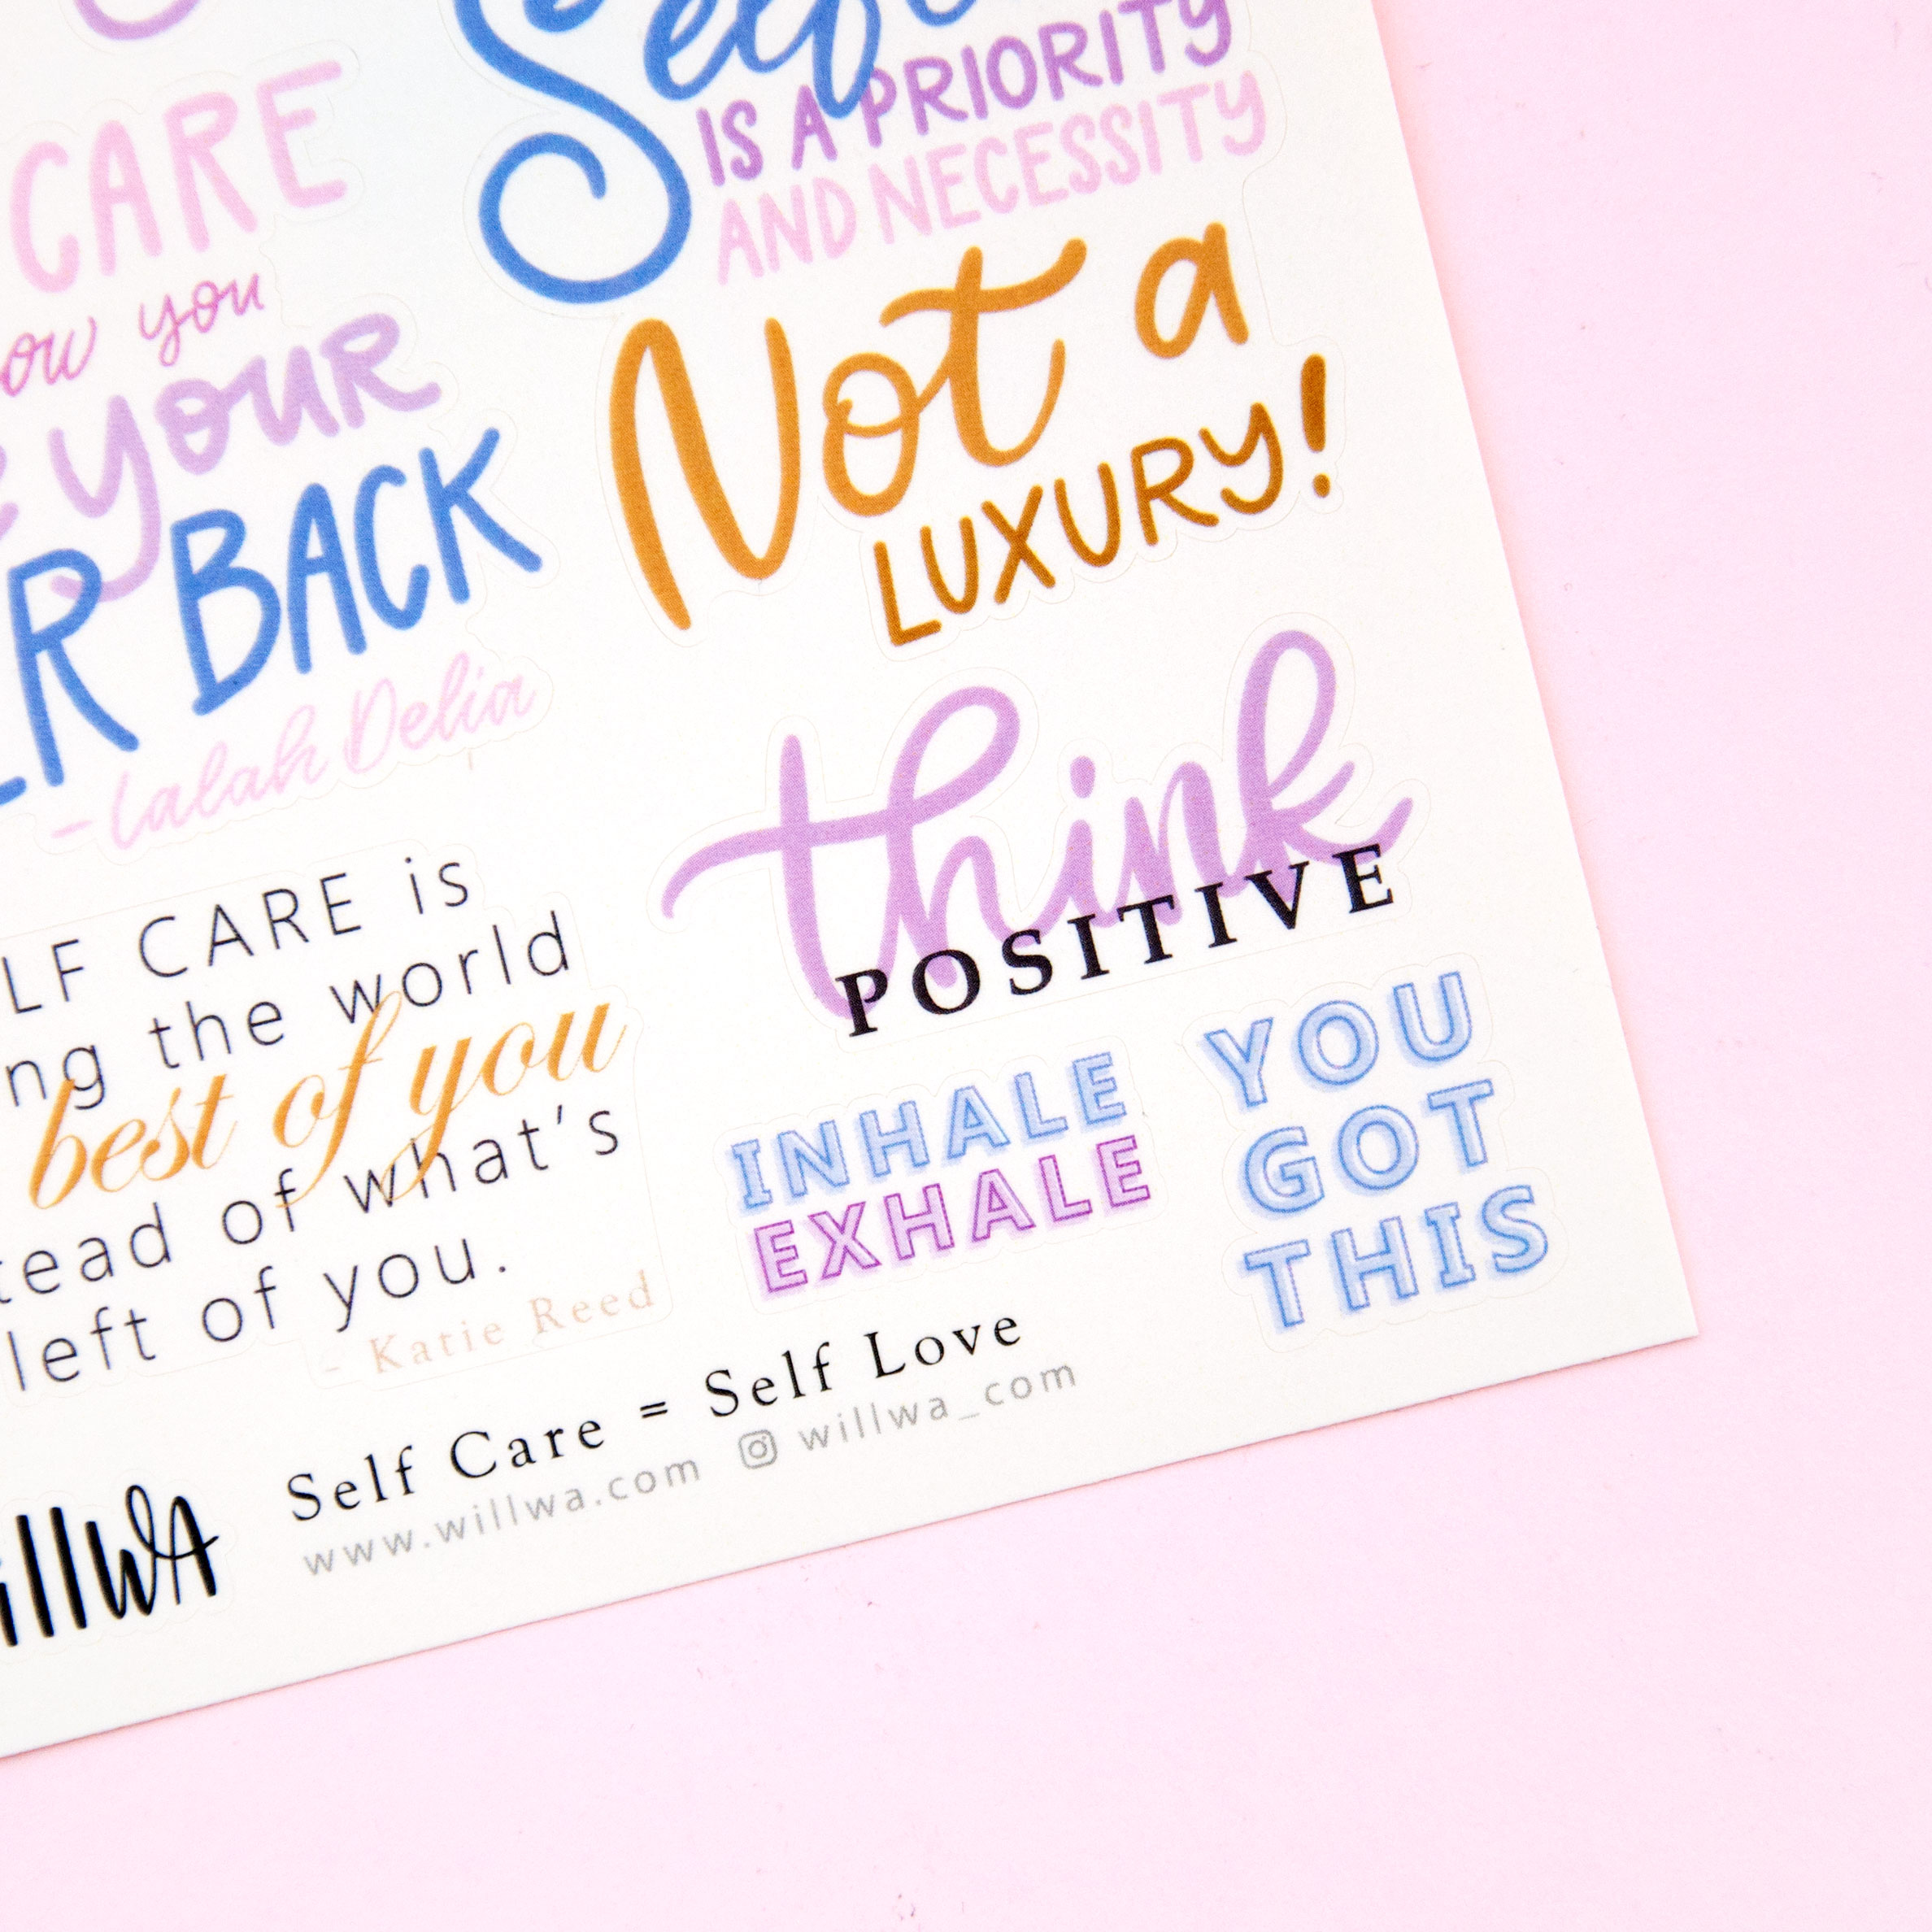 CARE
you
YOUR
BACK
- Lalah Delia
Self
IS A PRIORITY
AND NECESSITY
Not a
LUXURY!
think
POSITIVE
CARE is
the world
best of you
of what's
left of you.
- Katie Reed
INHALE
EXHALE
YOU
GOT
THIS
Self Care = Self Love
www.willwa.com willwa_com